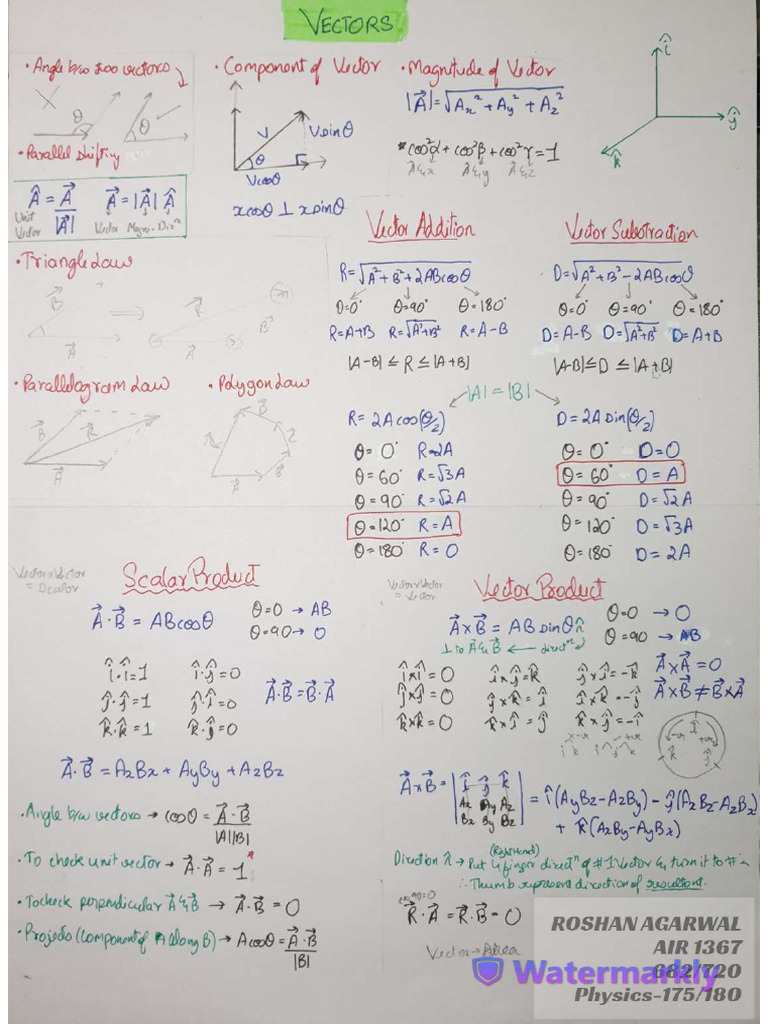 VECTORS
• Angle b/w two vectors
θ
θ
• Parallel shifting
Â = A⃗ / |A⃗|
Unit Vector
A⃗ = |A⃗| Â
Vector Magni. Dirⁿ
• Component of Vector
V
V sinθ
θ
V cosθ
x cosθ ⊥ x sinθ
• Magnitude of Vector
|A⃗| = √Ax² + Ay² + Az²
* cos²α + cos²β + cos²γ = 1
A⃗ & x A⃗ & y A⃗ & z
î
ĵ
k̂
• Triangle Law
B⃗
A⃗
⇒
R⃗
A⃗
B⃗
• Parallelogram Law
B⃗
R⃗
A⃗
• Polygon Law
B⃗
R⃗
A⃗
B⃗
Vector Addition
R = √A² + B² + 2ABcosθ
θ=0° θ=90° θ=180°
R=A+B R=√A²+B² R=A-B
|A-B| ≤ R ≤ |A+B|
Vector Substraction
D = √A² + B² - 2ABcosθ
θ=0° θ=90° θ=180°
D=A-B D=√A²+B² D=A+B
|A-B| ≤ D ≤ |A+B|
|A| = |B|
R = 2A cos(θ/2)
θ = 0° R=2A
θ = 60° R=√3A
θ = 90° R=√2A
θ=120° R=A
θ=180° R=0
D = 2A sin(θ/2)
θ = 0° D=0
θ = 60° D=A
θ = 90° D=√2A
θ = 120° D=√3A
θ = 180° D=2A
Vector x Vector
= Scalar
Scalar Product
A⃗·B⃗ = ABcosθ
θ=0 → AB
θ=90 → 0
î·î=1 î·ĵ=0
ĵ·ĵ=1 ĵ·î=0
k̂·k̂=1 k̂·ĵ=0
A⃗·B⃗ = B⃗·A⃗
A⃗·B⃗ = AxBx + AyBy + AzBz
• Angle b/w vectors → cosθ = A⃗·B⃗ / |A||B|
• To check unit vector → A⃗·A⃗ = 1
• To check perpendicular A⃗ & B⃗ → A⃗·B⃗ = 0
• Projecto (Component of A along B) → A cosθ = A⃗·B⃗ / |B|
Vector x Vector
= Vector
Vector Product
A⃗xB⃗ = AB sinθ n̂
⊥ to A⃗ & B⃗ ← directⁿ
θ=0 → 0
θ=90 → AB
îxî=0 îxĵ=k̂ ĵxî=-k̂
ĵxĵ=0 ĵxk̂=î îxk̂=-ĵ
k̂xk̂=0 k̂xî=ĵ k̂xĵ=-î
A⃗xA⃗ = 0
A⃗xB⃗ ≠ B⃗xA⃗
-ve +ve
î
k̂ ĵ
-ve +ve
i k i j k
A⃗xB⃗ = | î ĵ k̂ | = î(AyBz-AzBy) - ĵ(AxBz-AzBx)
Ax Ay Az
Bx By Bz
+ k̂(AxBy-AyBx)
(Right hand)
Direction n̂ → Put 4 finger directⁿ of #1 Vector & turn it to #2
∴ Thumb represent direction of resultant.
cos90=0
R⃗·A⃗ = R⃗·B⃗ = 0
Vector → Area
ROSHAN AGARWAL
AIR 1367
682/720
Physics-175/180
Watermarkly